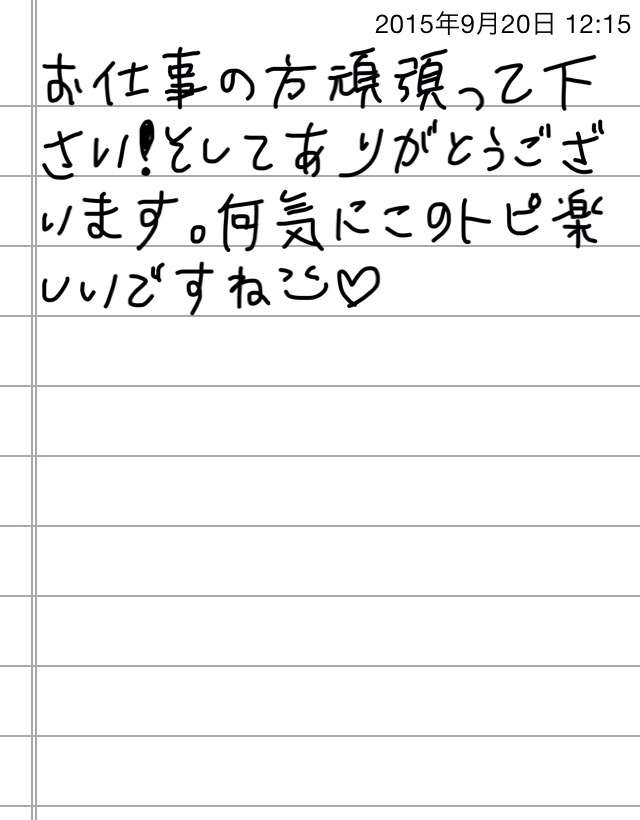 2015年9月20日 12:15
お仕事の方頑張って下
さい!そしてありがとうござ
います。何気にこのトピ楽
しいですね♡